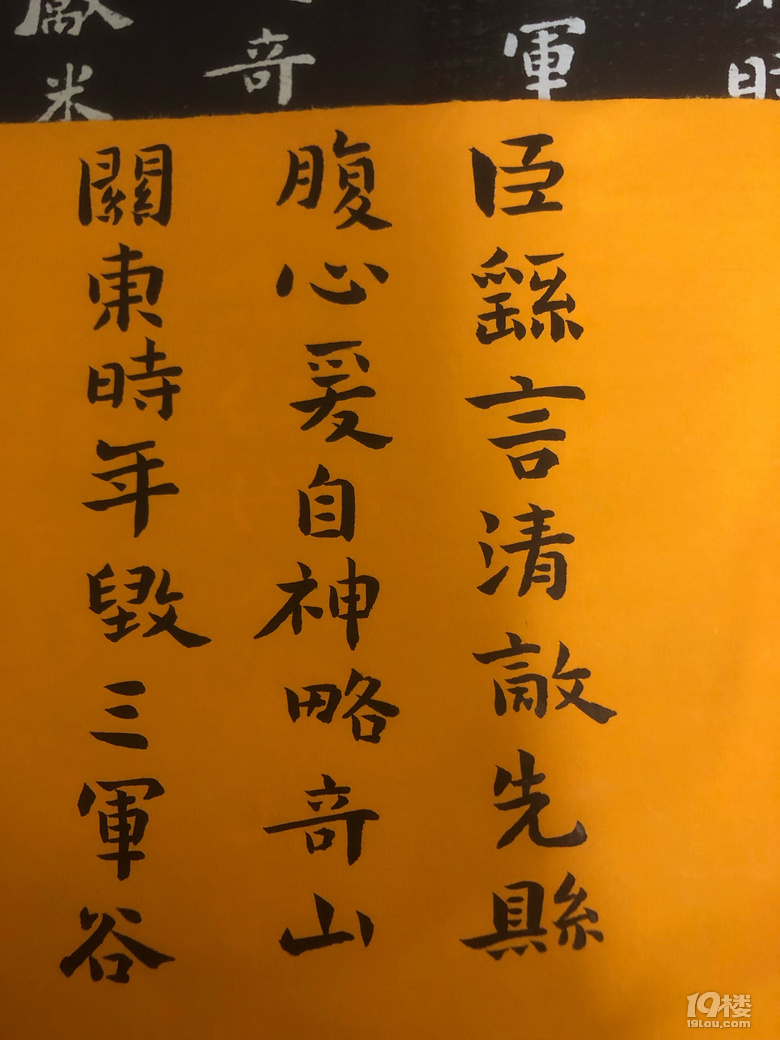 時
軍
奇
米
臣繇言清敵先縣
腹心爰自神略奇山
關東時年毀三軍谷
19楼
19lou.com